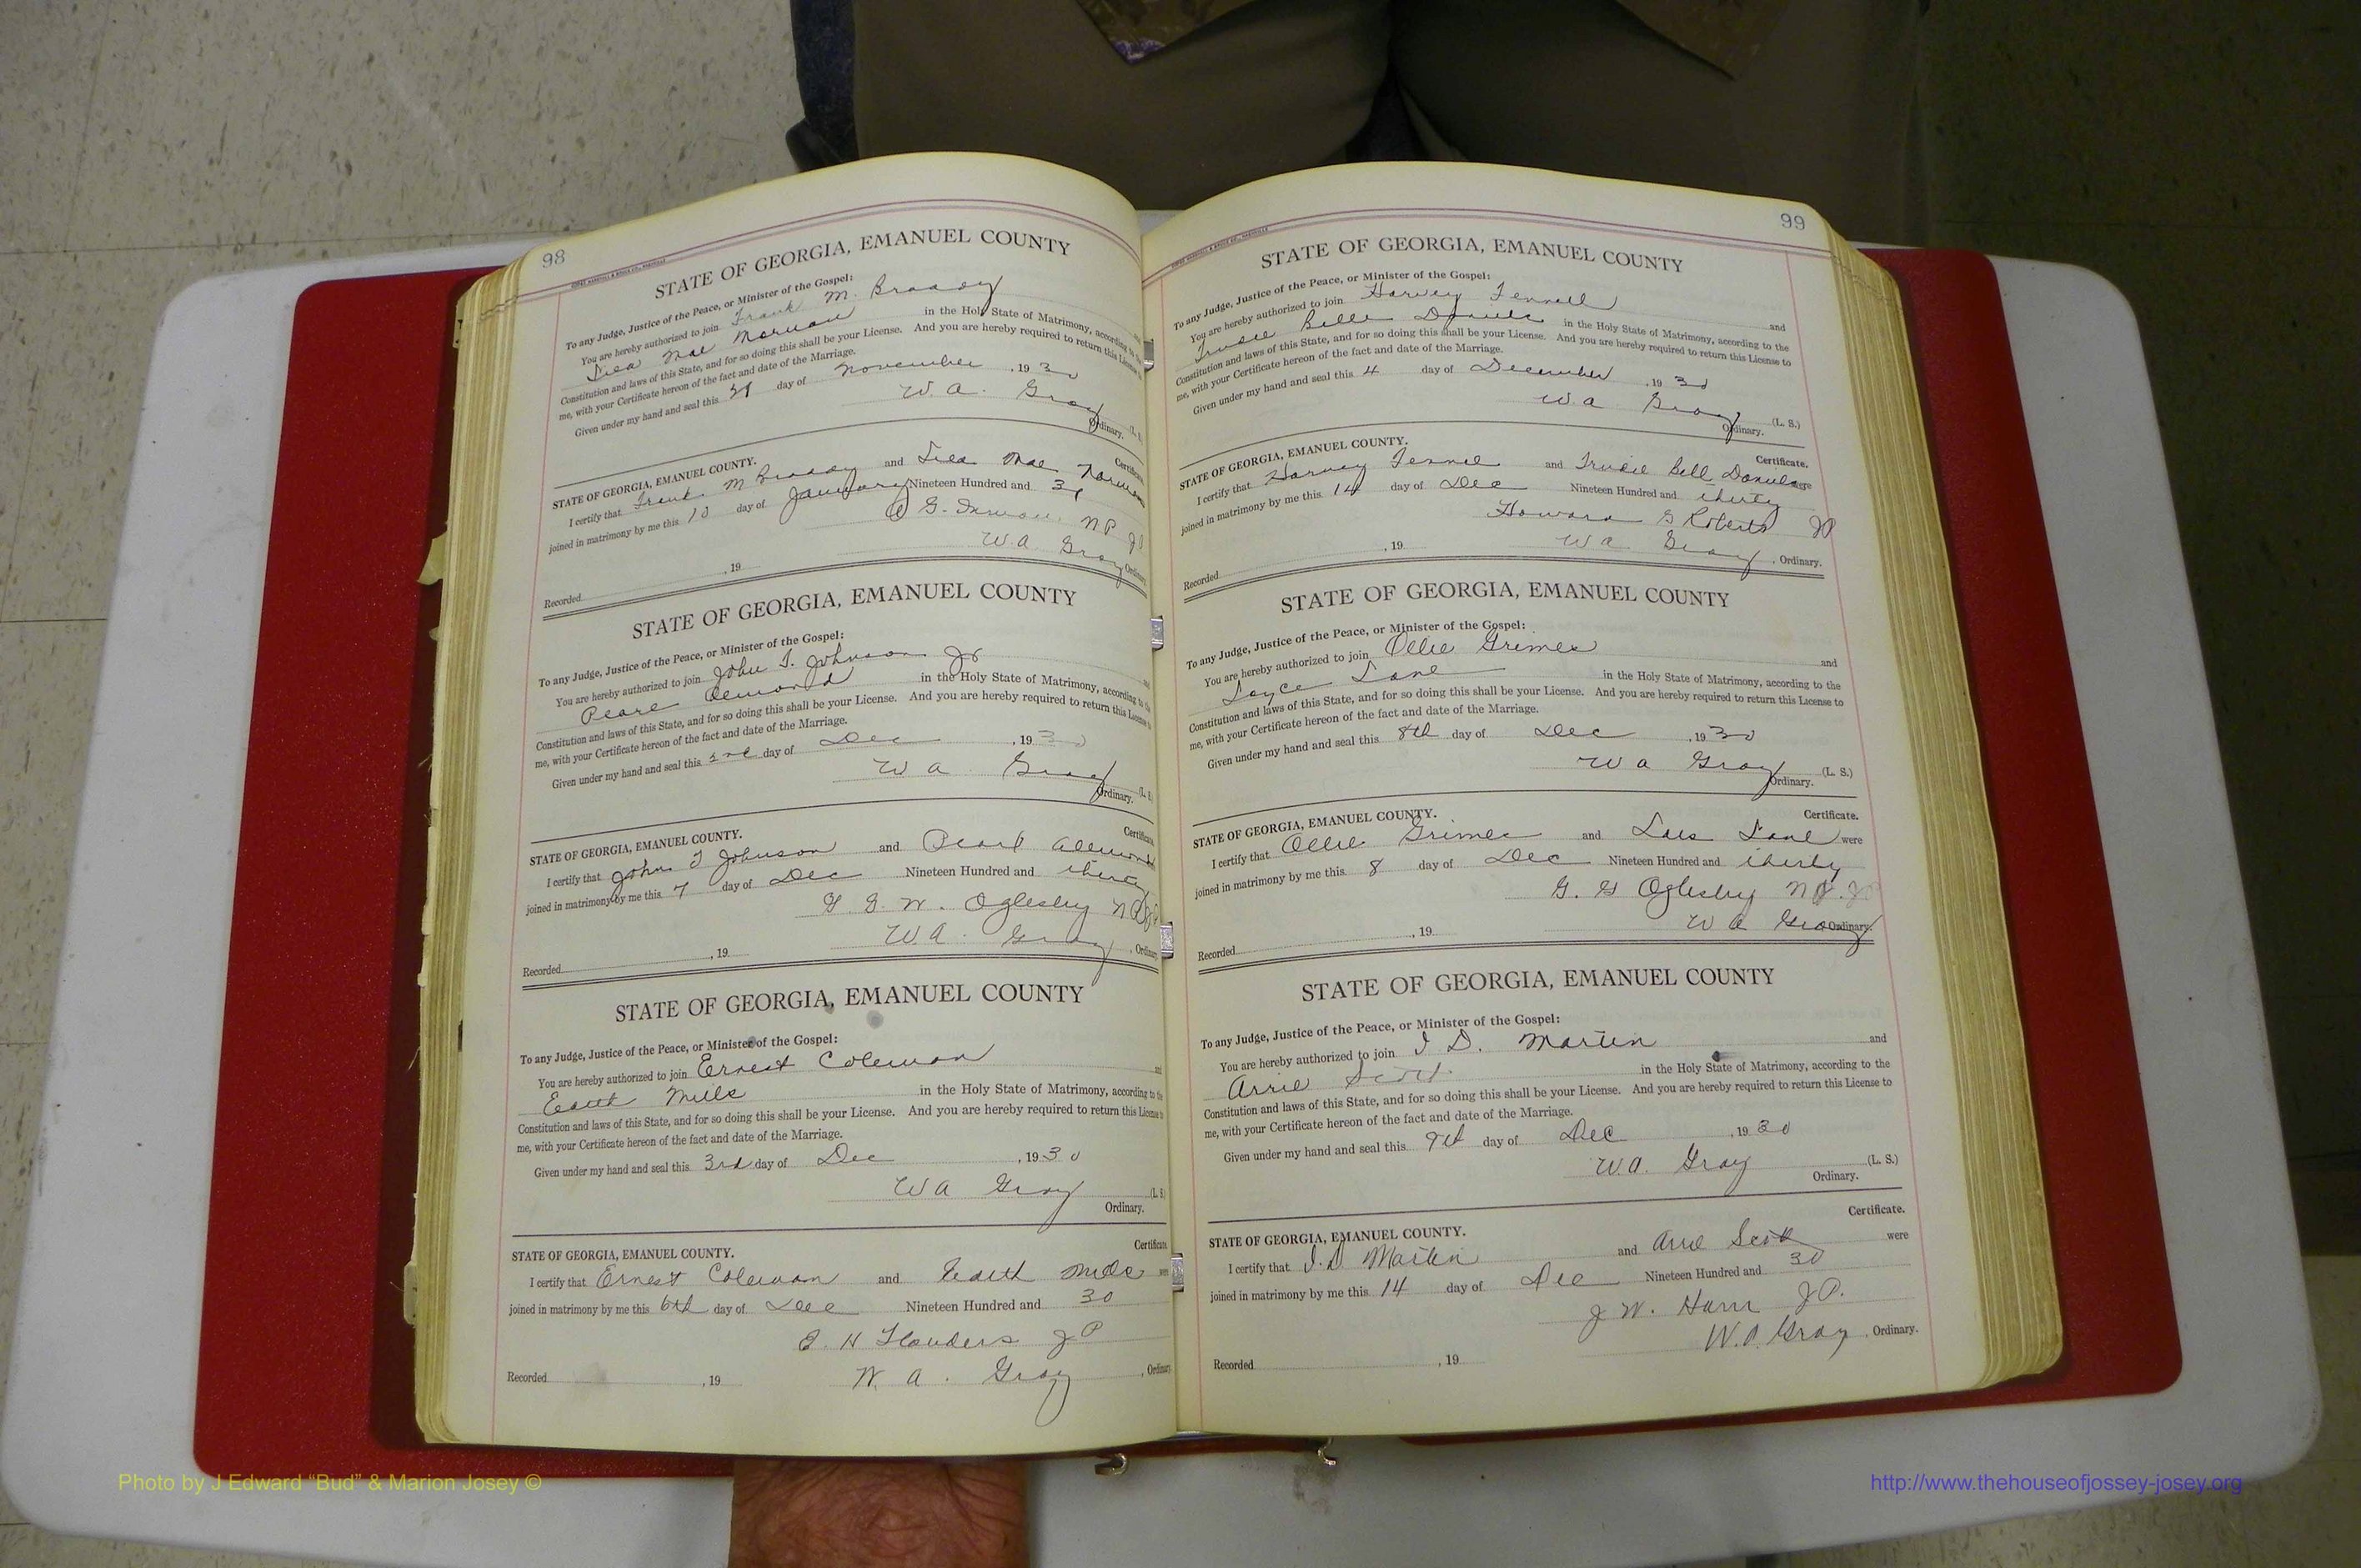 98
STATE OF GEORGIA, EMANUEL COUNTY
To any Judge, Justice of the Peace, or Minister of the Gospel:
You are hereby authorized to join Frank M. Braddy
Mae Norman in the Holy State of Matrimony, according to
Constitution and laws of this State, and for so doing this shall be your License. And you are hereby required to return this License
me, with your Certificate hereon of the fact and date of the Marriage.
Given under my hand and seal this day of November , 1930
W. A. Gray (L. S.
Ordinary.
Certificate
STATE OF GEORGIA, EMANUEL COUNTY.
I certify that Frank M Braddy and Mae Norman
joined in matrimony by me this day of January Nineteen Hundred and 31
N P
W. A. Gray Ordinary
Recorded , 19
STATE OF GEORGIA, EMANUEL COUNTY
To any Judge, Justice of the Peace, or Minister of the Gospel:
You are hereby authorized to join John T. Johnson Jr
in the Holy State of Matrimony, according to the
Constitution and laws of this State, and for so doing this shall be your License. And you are hereby required to return this License
me, with your Certificate hereon of the fact and date of the Marriage.
Given under my hand and seal this 2nd day of Dec , 1930
W A Gray (L. S
Ordinary.
Certificate
STATE OF GEORGIA, EMANUEL COUNTY.
I certify that John T Johnson and Pearl
joined in matrimony by me this 7 day of Dec Nineteen Hundred and thirty
Oglesby N P
W. A. Gray , Ordinary
Recorded , 19
STATE OF GEORGIA, EMANUEL COUNTY
To any Judge, Justice of the Peace, or Minister of the Gospel:
You are hereby authorized to join Ernest Coleman and
Edith Mills in the Holy State of Matrimony, according to the
Constitution and laws of this State, and for so doing this shall be your License. And you are hereby required to return this License
me, with your Certificate hereon of the fact and date of the Marriage.
Given under my hand and seal this 3rd day of Dec , 1930
W A Gray (L. S
Ordinary.
Certificate
STATE OF GEORGIA, EMANUEL COUNTY.
I certify that Ernest Coleman and Edith Mills
joined in matrimony by me this 6th day of Dec Nineteen Hundred and 30
E. H Flanders J P
W. A. Gray , Ordinary
Recorded , 19
99
STATE OF GEORGIA, EMANUEL COUNTY
To any Judge, Justice of the Peace, or Minister of the Gospel:
You are hereby authorized to join Harvey Fennell and
Trudie Belle Daniels in the Holy State of Matrimony, according to the
Constitution and laws of this State, and for so doing this shall be your License. And you are hereby required to return this License to
me, with your Certificate hereon of the fact and date of the Marriage.
Given under my hand and seal this 4 day of December , 1930
W. A Gray (L. S.)
Ordinary.
Certificate.
STATE OF GEORGIA, EMANUEL COUNTY.
I certify that Harvey Fennel and Trudie Bell Daniels were
joined in matrimony by me this 14 day of Dec Nineteen Hundred and thirty
Howard G Roberts JP
W A Gray , Ordinary.
Recorded , 19
STATE OF GEORGIA, EMANUEL COUNTY
To any Judge, Justice of the Peace, or Minister of the Gospel:
You are hereby authorized to join Ollie Grimes and
Lane in the Holy State of Matrimony, according to the
Constitution and laws of this State, and for so doing this shall be your License. And you are hereby required to return this License to
me, with your Certificate hereon of the fact and date of the Marriage.
Given under my hand and seal this 8th day of Dec , 1930
W A Gray (L. S.)
Ordinary.
Certificate.
STATE OF GEORGIA, EMANUEL COUNTY.
I certify that Ollie Grimes and Lane were
joined in matrimony by me this 8 day of Dec Nineteen Hundred and thirty
Oglesby N P. J
W A Gray Ordinary.
Recorded , 19
STATE OF GEORGIA, EMANUEL COUNTY
To any Judge, Justice of the Peace, or Minister of the Gospel:
You are hereby authorized to join J D. Martin and
Arrie Scott in the Holy State of Matrimony, according to the
Constitution and laws of this State, and for so doing this shall be your License. And you are hereby required to return this License to
me, with your Certificate hereon of the fact and date of the Marriage.
Given under my hand and seal this 9th day of Dec , 1930
W. A. Gray (L. S.)
Ordinary.
Certificate.
STATE OF GEORGIA, EMANUEL COUNTY.
I certify that J. D Martin and Arrie Scott were
joined in matrimony by me this 14 day of Dec Nineteen Hundred and 30
J W. J.P.
W. A. Gray , Ordinary.
Recorded , 19
Photo by J Edward “Bud” & Marion Josey ©
http://www.thehouseofjossey-josey.org